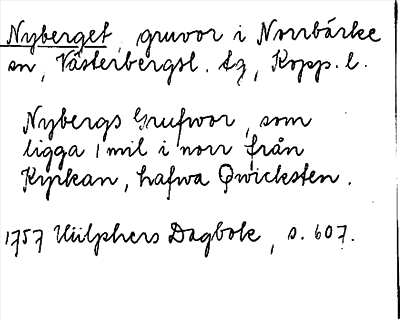 Nyberget, gruvor i Norrbärke
sn, Västerbergsl. tg, Kopp. l.
Nybergs Grufwor, som
ligga 1 mil i norr från
Kyrkan, hafwa Qwicksten.
1757 Hülphers Dagbok, s. 607.